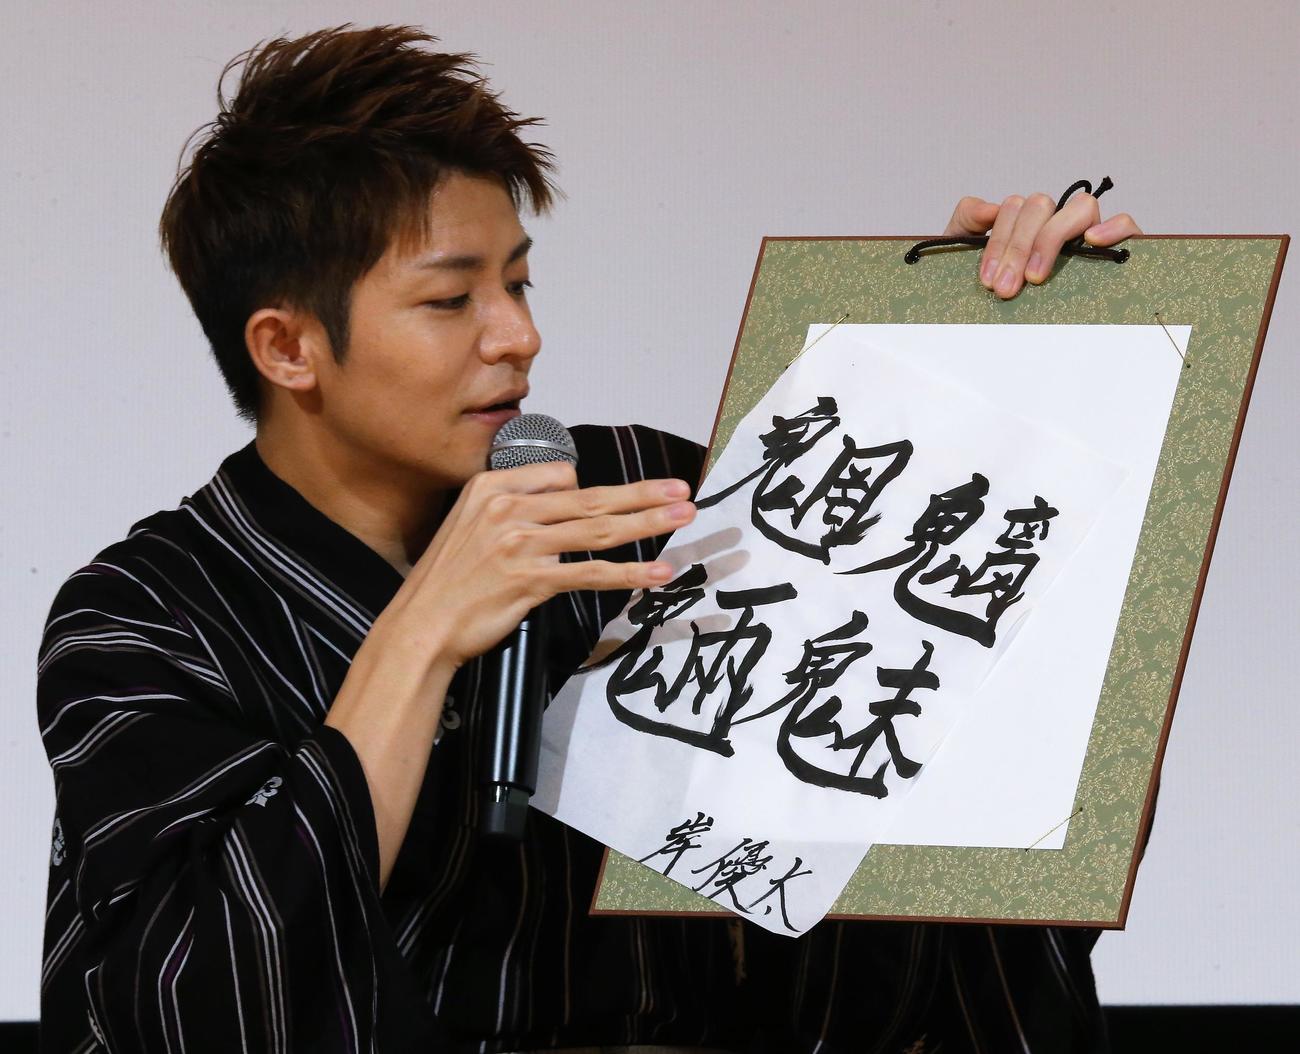 魑魅
魍魎
岸優太